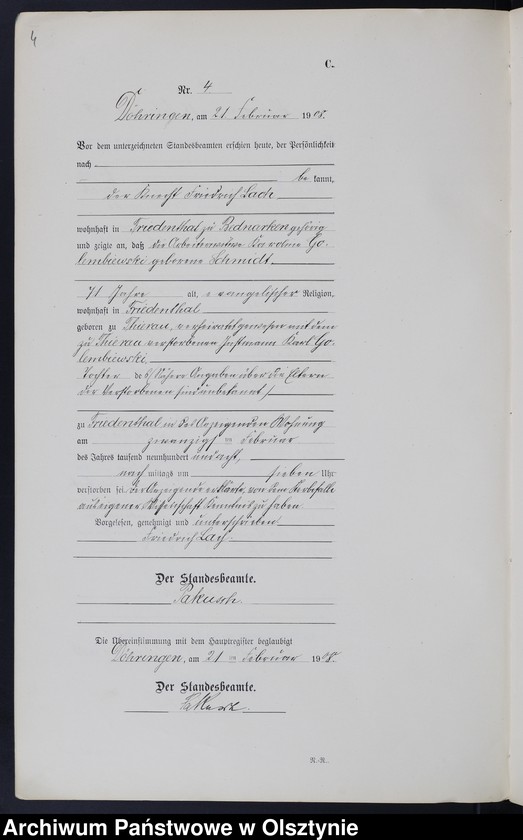 4
C.
Nr. 4
Döhringen, am 21 Februar 1908.
Vor dem unterzeichneten Standesbeamten erschien heute, der Persönlichkeit
nach
be kannt,
der Knecht Friedrich Lach
wohnhaft in Friedenthal zu Bednarken gehörig
und zeigte an, daß die Arbeiterwitwe Karoline Go-
lembiewski geborene Schmidt
71 Jahre alt, evangelischer Religion,
wohnhaft in Friedenthal
geboren zu Thierau, verheirathet gewesen mit dem
zu Thierau verstorbenen Instmann Karl Go-
lembiewski
Tochter de s/ Nähere Angaben über die Eltern
der Verstorbenen sind unbekannt /
zu Friedenthal in des Anzeigenden Wohnung
am zwanzigsten Februar
des Jahres tausend neunhundert und acht,
nach mittags um sieben Uhr
verstorben sei. Der Anzeigende erklärte, von dem Sterbefalle
aus eigener Wissenschaft Kenntnis zu haben
Vorgelesen, genehmigt und unterschrieben
Friedrich Lach
Der Standesbeamte.
Pakusch
Die Übereinstimmung mit dem Hauptregister beglaubigt
Döhringen, am 21 ten Februar 1908.
Der Standesbeamte.
Pakusch
N.-N.
Archiwum Państwowe w Olsztynie